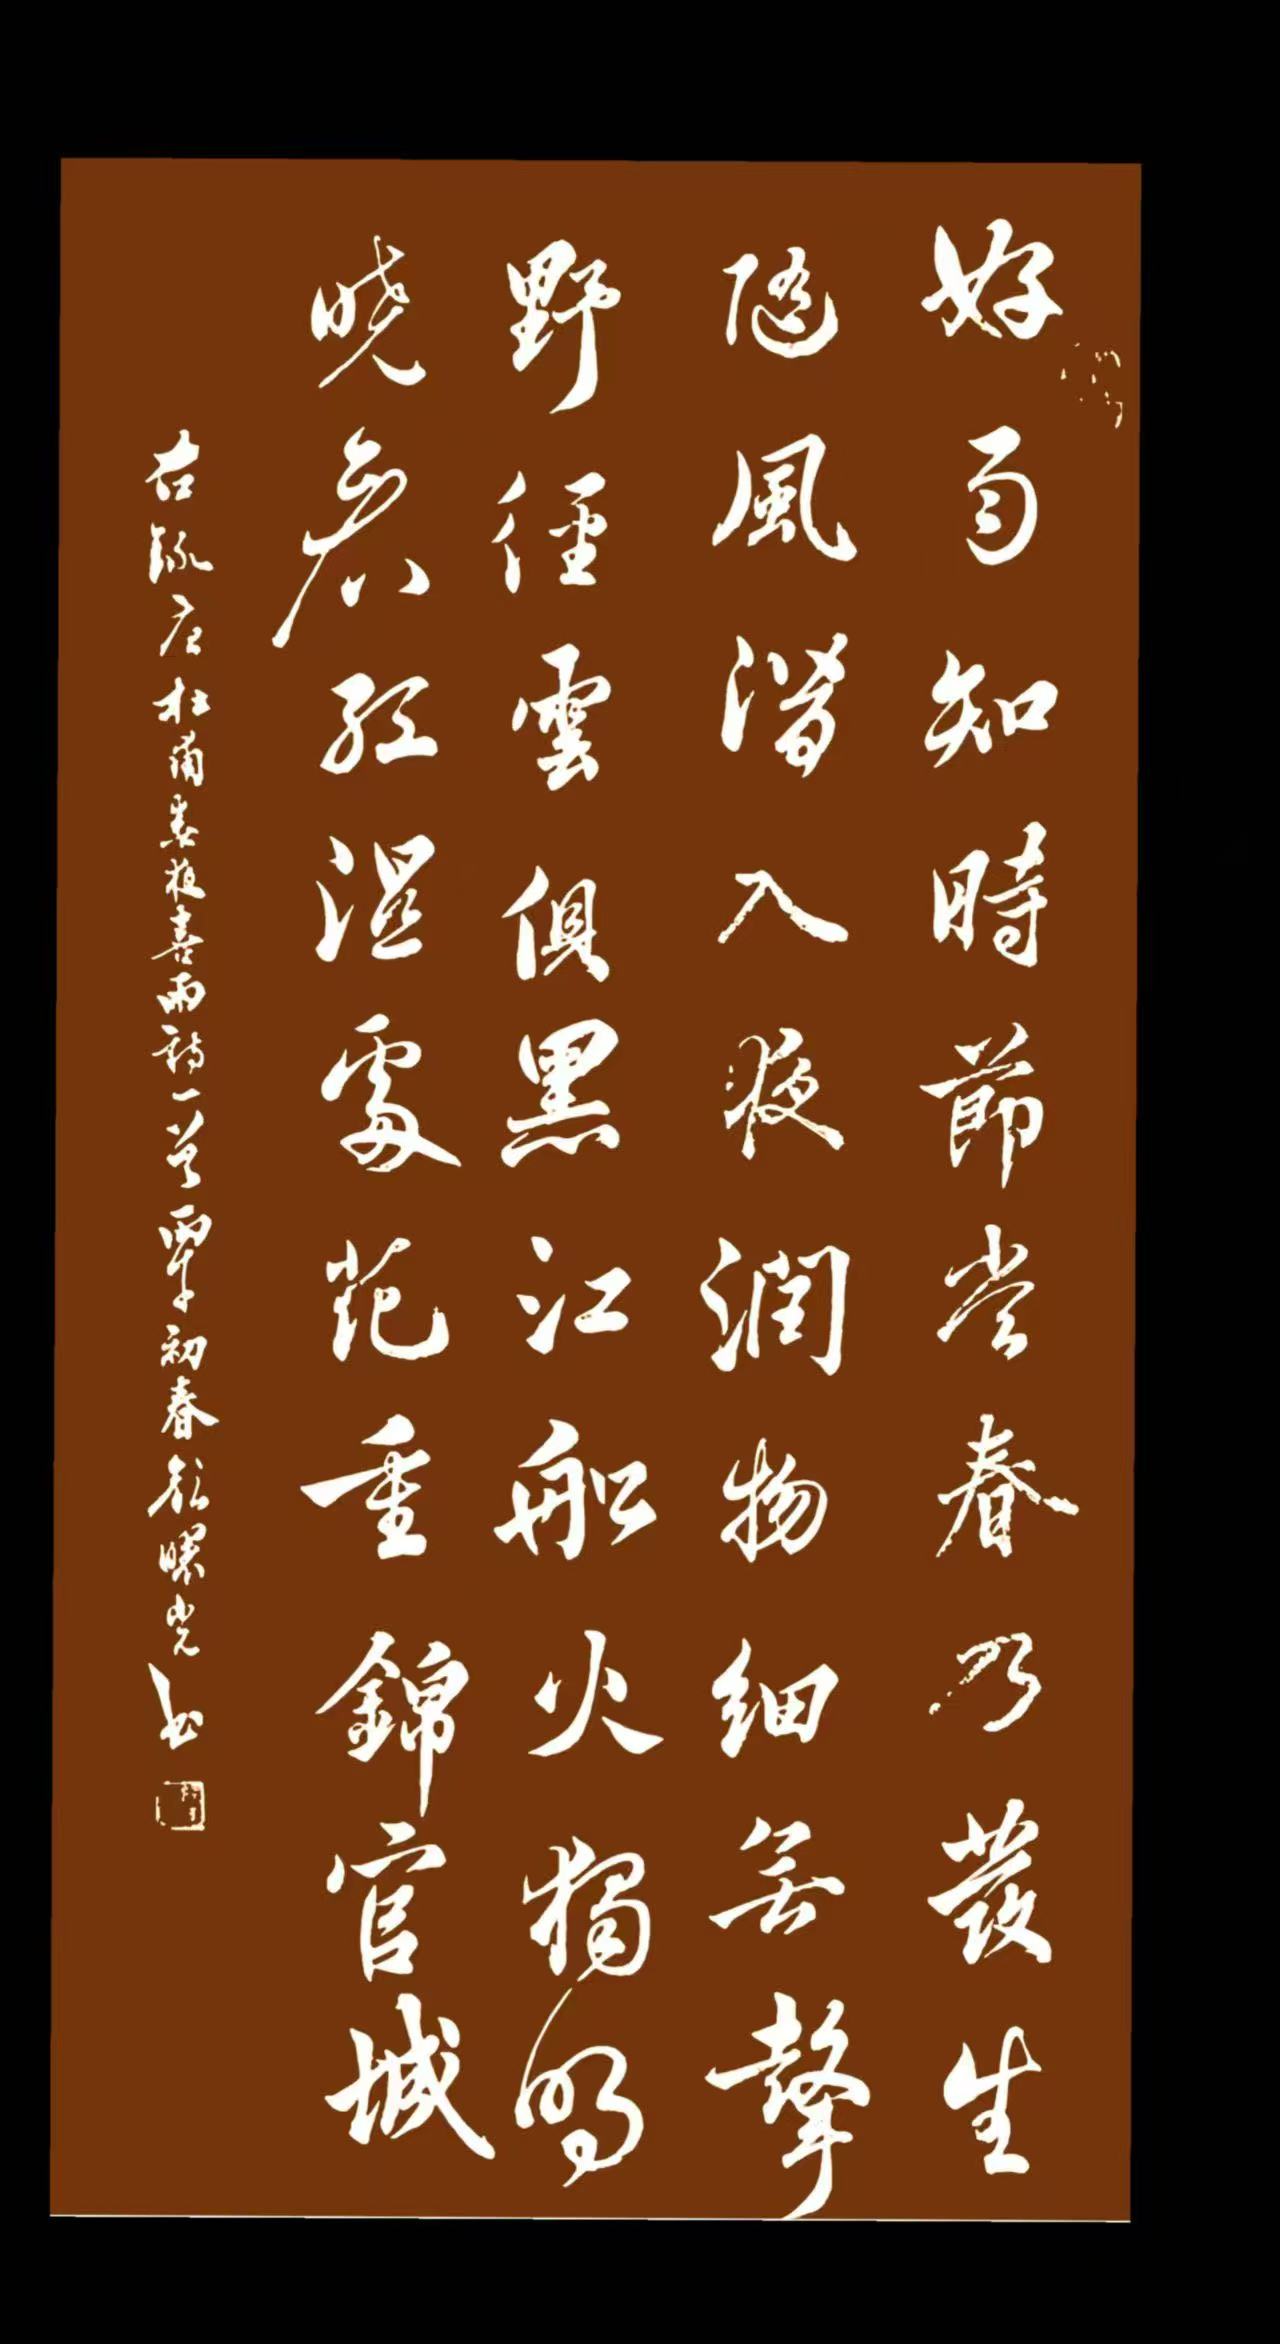 好雨知時節當春乃發生
隨風潛入夜潤物細無聲
野徑雲俱黑江船火獨明
曉看紅濕處花重錦官城
右錄唐杜甫春夜喜雨詩一首初春曙光書